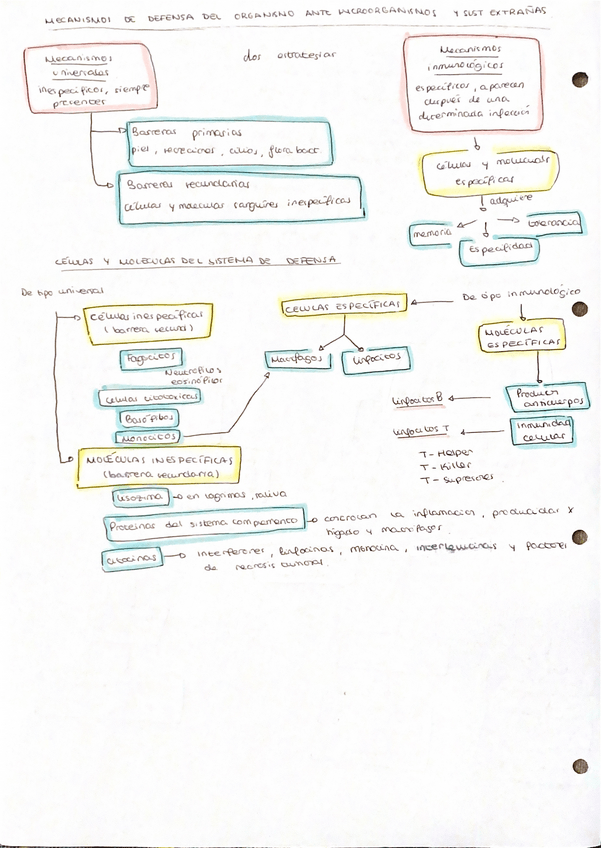 MECANISMOS DE DEFENSA DEL ORGANISMO ANTE MICROORGANISMOS Y SUST EXTRAÑAS
Mecanismos
universales
inespecíficos, siempre
presentes
dos estrategias
Mecanismos
inmunológicos
específicos, aparecen
después de una
determinada infección
Barreras primarias
piel, secreciones, cilios, flora bact
Barreras secundarias
células y moleculas sanguíneas inespecíficas
células y moleculas
específicas
adquiere
memoria
tolerancia
Especifidad
CÉLULAS Y MOLECULAS DEL SISTEMA DE DEFENSA
De tipo universal
Células inespecíficas
(barrera secund)
Fagocitos
Neutrofilos
eosinófilos
Celulas citotóxicas
Basófilos
Monocitos
CELULAS ESPECÍFICAS
Macrófagos
Linfocitos
De tipo inmunológico
MOLÉCULAS
ESPECÍFICAS
Producen
anticuerpos
Linfocitos B
Inmunidad
celular
Linfocitos T
T - Helper
T - Killer
T - supresores.
MOLÉCULAS INESPECÍFICAS
(barrera secundaria)
Lisozima en lágrimas, saliva
Proteinas del sistema complemento controlan la inflamación, producidas x
hígado y macrófagos.
Citocinas interferones, linfocinas, monocina, interleucinas y factores
de necrosis tumoral.